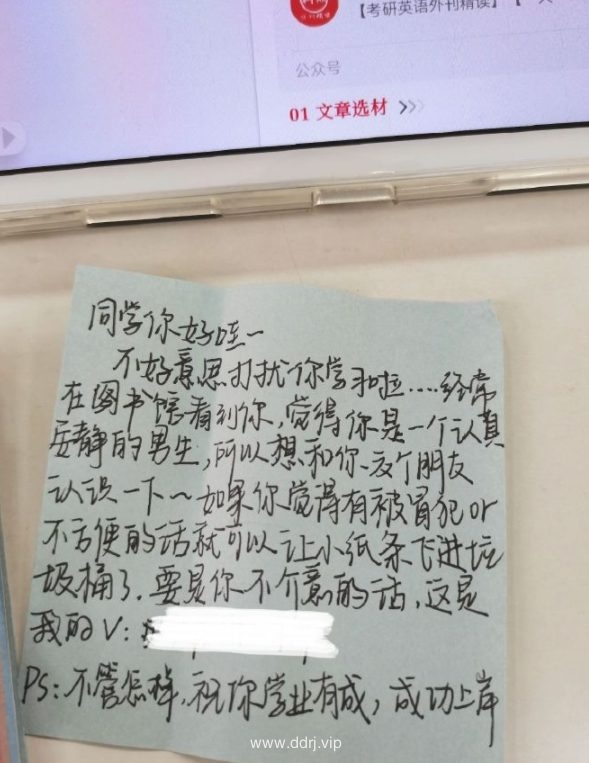 【考研英语外刊精读】
公众号
01 文章选材 >>>
同学你好哇~
不好意思打扰你学习啦....经常
在图书馆看到你,觉得你是一个认真
安静的男生,所以想和你交个朋友
认识一下~如果你觉得有被冒犯or
不方便的话就可以让小纸条飞进垃
圾桶了.要是你不介意的话,这是
我的V:
PS:不管怎样,祝你学业有成,成功上岸
www.ddrj.vip